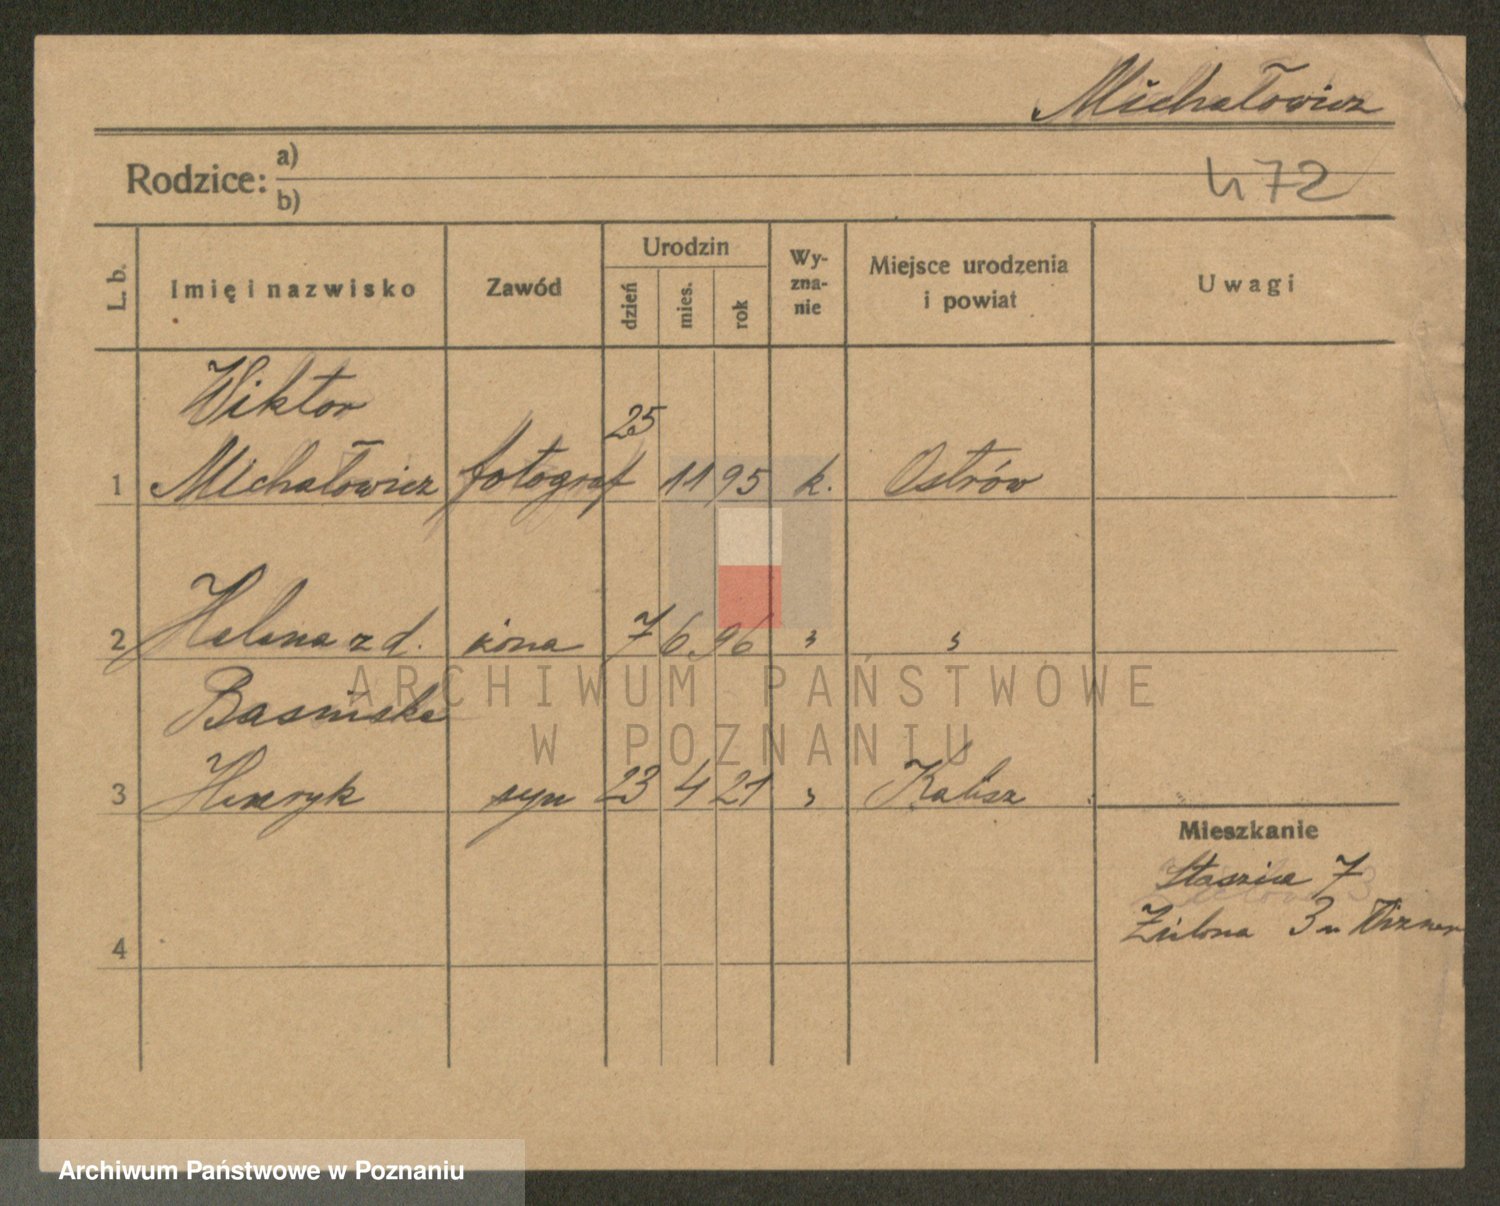 Michałowicz
Rodzice: a)
b)
472
L. b.
Imię i nazwisko
Zawód
Urodzin
dzień
mies.
rok
Wy-
zna-
nie
Miejsce urodzenia
i powiat
Uwagi
Wiktor
1 Michałowicz fotograf 25 11 95 k. Ostrów
2 Helena z d. żona 7 6. 96 " "
Basińska
3 Henryk syn 23 4 21 " Kalisz
Mieszkanie
Staszica 7
Zielona 3
4
ARCHIWUM PAŃSTWOWE
W POZNANIU
Archiwum Państwowe w Poznaniu